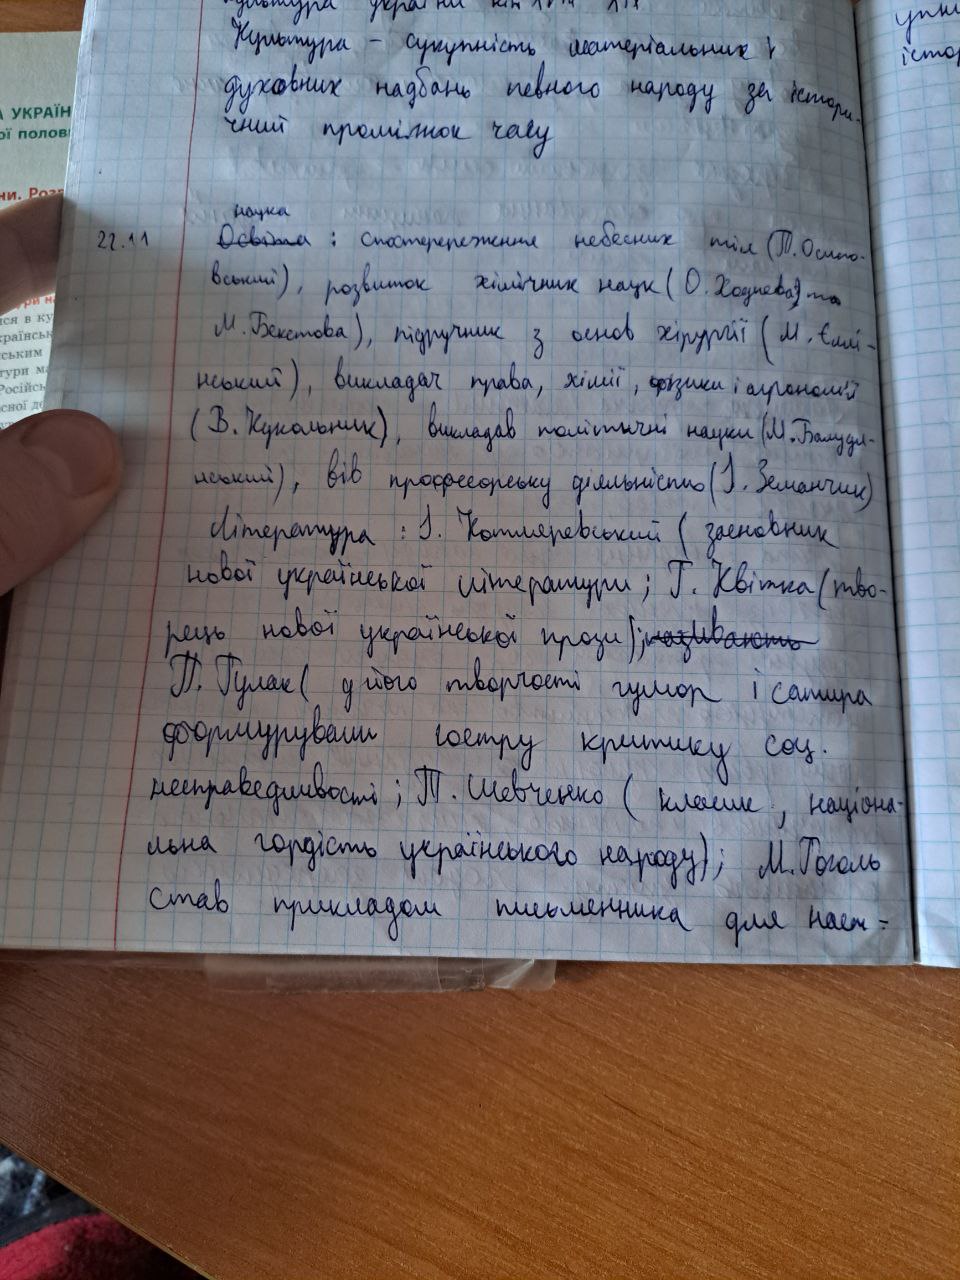 культура україни кін XVIII XIX
Культура – сукупність матеріальних і
духовних надбань певного народу за істори-
чний проміжок часу
наука
22.11 Освіта : спостереження небесних тіл (Т. Осипо-
вський), розвиток хімічних наук ( О. Ходнева) та
М. Бекетова), підручник з основ хірургії ( М. Єллі-
нський), викладач права, хімії, фізики і агрономії
(В. Кукольник), викладав політичні науки (М. Балудя-
нський), вів професорську діяльністю ( І. Земанчик)
Література : І. Котляревський ( засновник
нової української літератури ; Г. Квітка ( тво-
рець нової української прози ); називають
П. Гулак ( у його творчості гумор і сатира
формурували гостру критику соц.
несправедливості ; Т. Шевченко ( класик , націона-
льна гордість українського народу) ; М. Гоголь
став прикладом письменника для наст-
А УКРАЇН
ої полов
ни. Розв
ри на
ися в ку
країнськ
ським
тури ма
Російсь